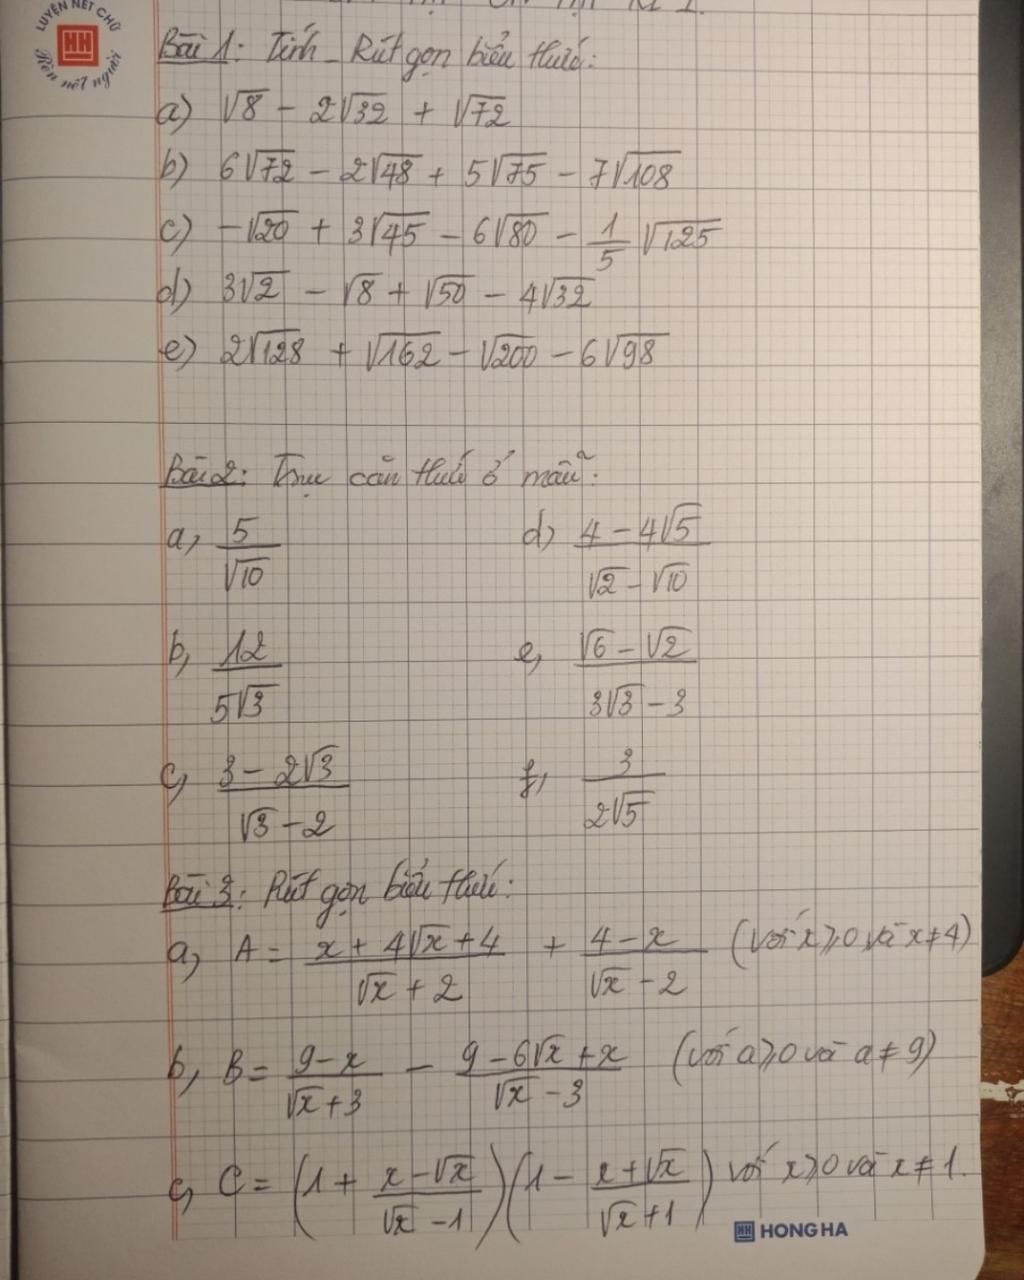 LUYỆN NÉT CHỮ
Rèn nết người
Bài 1: Tính - Rút gọn biểu thức:
a) √8 - 2√32 + √72
b) 6√72 - 2√48 + 5√75 - 7√108
c) -√20 + 3√45 - 6√80 - 1/5 √125
d) 3√2 - √8 + √50 - 4√32
e) 2√128 + √162 - √200 - 6√98
Bài 2: Trục căn thức ở mẫu:
a, 5/√10
d) (4 - 4√5)/(√2 - √10)
b, 12/(5√3)
e, (√6 - √2)/(3√3 - 3)
c, (3 - 2√3)/(√3 - 2)
f, 3/(2√5)
Bài 3: Rút gọn biểu thức:
a, A = (x + 4√x + 4)/(√x + 2) + (4 - x)/(√x - 2) (với x ⩾ 0 và x ≠ 4)
b, B = (9 - x)/(√x + 3) - (9 - 6√x + x)/(√x - 3) (với a ⩾ 0 và a ≠ 9)
c, C = (1 + (x - √x)/(√x - 1))(1 - (x + √x)/(√x + 1)) với x ⩾ 0 và x ≠ 1.
HONG HA